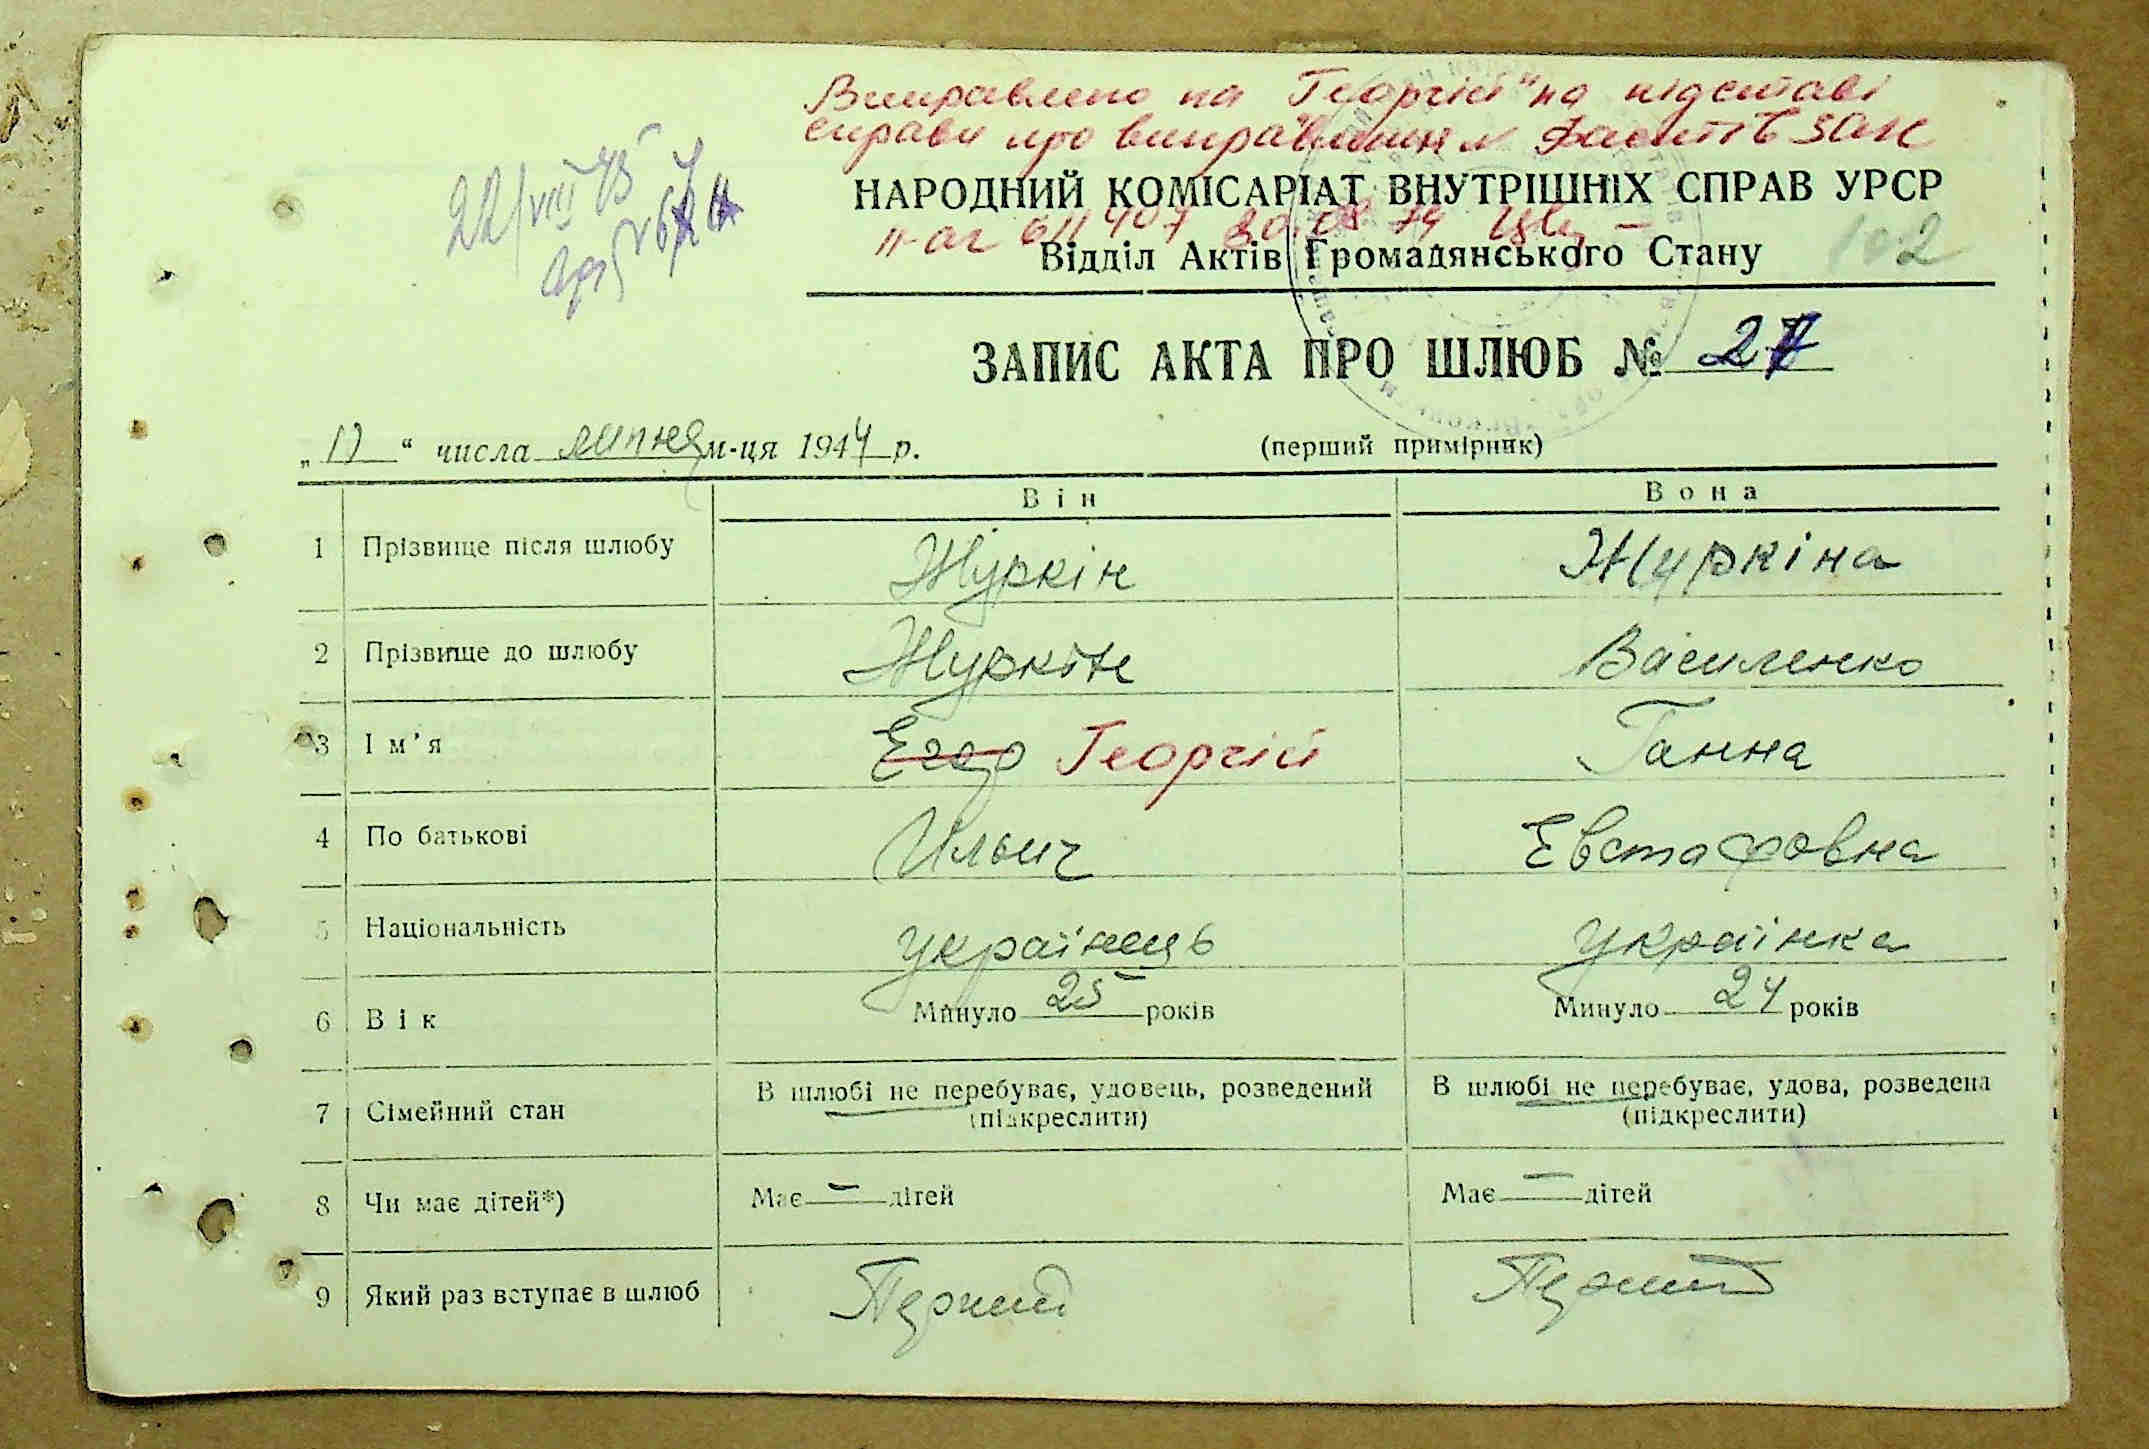 Виправлено на "Георгій" на підставі
справи про виправлення
НАРОДНИЙ КОМІСАРІАТ ВНУТРІШНІХ СПРАВ УРСР
22/VIII 45
Відділ Актів Громадянського Стану 102
ЗАПИС АКТА ПРО ШЛЮБ № 27
„17“ числа липня м-ця 1944 р. (перший примірник)
Він Вона
1 Прізвище після шлюбу Журкін Журкіна
2 Прізвище до шлюбу Журкін Василенко
3 Ім’я Егор Георгій Ганна
4 По батькові Ильич Евстафовна
5 Національність українець українка
6 Вік Минуло 25 років Минуло 24 років
7 Сімейний стан В шлюбі не перебуває, удовець, розведений В шлюбі не перебуває, удова, розведена
(підкреслити) (підкреслити)
8 Чи має дітей*) Має — дітей Має — дітей
9 Який раз вступає в шлюб Перший Перший